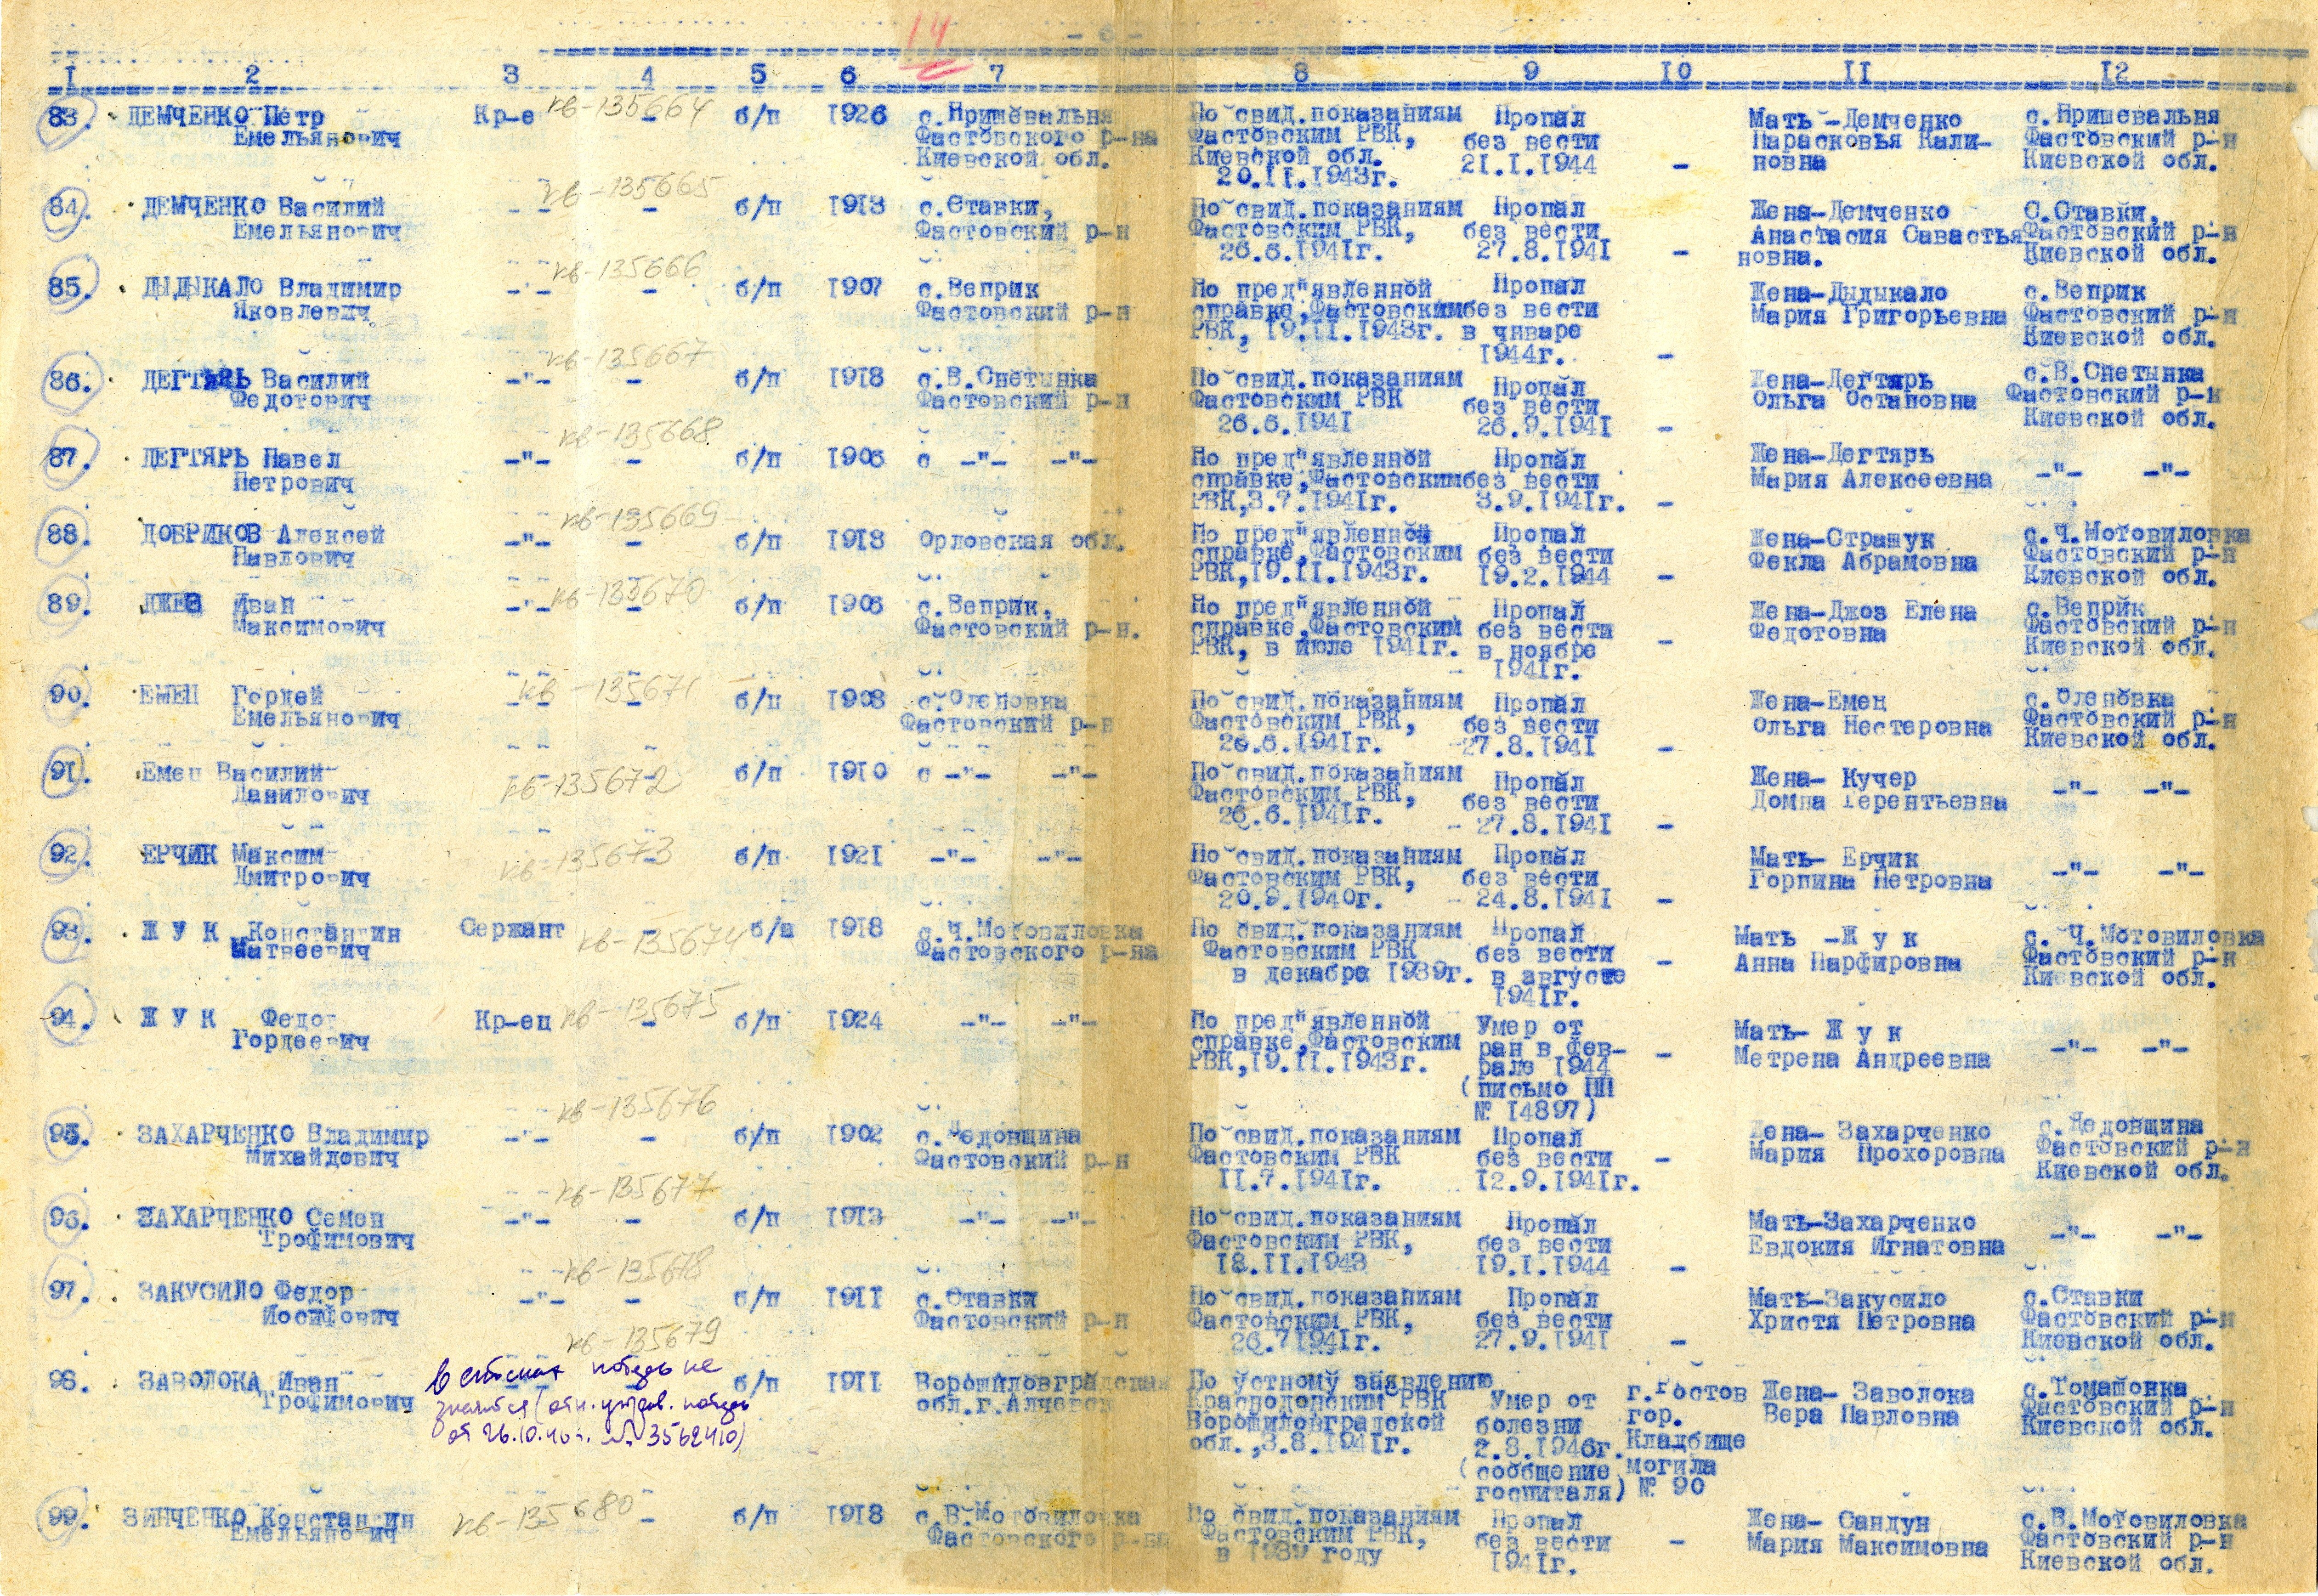 14
- 6 -
I 2 3 4 5 6 7 8 9 10 II 12
83. ДЕМЧЕНКО Петр Кр-е кв-135664 - б/п 1926 с.Кришевальня По свид.показаниям Пропал Мать -Демченко с.Кришевальня
Емельянович Фастовского р-на Фастовским РВК, без вести Парасковья Кали- Фастовский р-н
Киевской обл. Киевской обл. 21.I.1944 - новна Киевской обл.
20.II.1943г.
84. ДЕМЧЕНКО Василий -"- кв-135665 - б/п 1913 с.Ставки, По свид.показаниям Пропал Жена-Демченко С.Ставки,
Емельянович Фастовский р-н Фастовским РВК, без вести Анастасия Савастья Фастовский р-н
26.6.1941г. 27.8.1941 - новна. Киевской обл.
85. ДЫДЫКАЛО Владимир -"- кв-135666 - б/п 1907 с.Веприк По пред"явленной Пропал Жена-Дыдыкало с.Веприк
Яковлевич Фастовский р-н справке,Фастовским без вести Мария Григорьевна Фастовский р-н
РВК, 19.II.1943г. в январе Киевской обл.
1944г. -
86. ДЕГТЯРЬ Василий -"- кв-135667 - б/п 1918 с.В.Снетынка По свид.показаниям Пропал Жена-Дегтярь с.В.Снетынка
Федотович Фастовский р-н Фастовским РВК без вести Ольга Остаповна Фастовский р-н
26.6.1941 26.9.1941 - Киевской обл.
87. ДЕГТЯРЬ Павел -"- кв-135668 - б/п 1906 с -"- -"- По пред"явленной Пропал Жена-Дегтярь
Петрович справке,Фастовским без вести Мария Алексеевна -"- -"-
РВК,3.7.1941г. 3.9.1941г. -
88. ДОБРИКОВ Алексей -"- кв-135669 - б/п 1913 Орловская обл. По пред"явленной Пропал Жена-Стращук с.Ч.Мотовиловка
Павлович справке,Фастовским без вести Фекла Абрамовна Фастовский р-н
РВК,19.II.1943г. 19.2.1944 - Киевской обл.
89. ДЖЕЗ Иван -"- кв-135670 - б/п 1906 с.Веприк, По пред"явленной Пропал Жена-Джоз Елена с.Веприк
Максимович Фастовский р-н. справке,Фастовским без вести Федотовна Фастовский р-н
РВК, в июле 1941г. в ноябре - Киевской обл.
1941г.
90. ЕМЕЦ Гордей -"- кв-135671 - б/п 1908 с.Оленовка По свид.показаниям Пропал Жена-Емец с.Оленовка
Емельянович Фастовский р-н Фастовским РВК, без вести Ольга Нестеровна Фастовский р-н
26.6.1941г. 27.8.1941 - Киевской обл.
91. Емец Василий кв-135672 - б/п 1910 с -"- -"- По свид.показаниям Пропал Жена- Кучер
Данилович Фастовским РВК, без вести Домна Терентьевна -"- -"-
26.6.1941г. 27.8.1941 -
92. ЕРЧИК Максим кв-135673 - б/п 1921 -"- -"- По свид.показаниям Пропал Мать- Ерчик
Дмитрович Фастовским РВК, без вести Горпина Петровна -"- -"-
20.9.1940г. 24.8.1941 -
93. Ж У К Константин Сержант кв-135674 б/п 1918 с.Ч.Мотовиловка По свид.показаниям Пропал Мать -Ж у к с. Ч.Мотовиловка
Матвеевич Фастовского р-на Фастовским РВК без вести - Анна Парфировна Фастовский р-н
в декабре 1939г. в августе Киевской обл.
1941г.
94. Ж У К Федот Кр-ец кв-135675 - б/п 1924 -"- -"- По пред"явленной Умер от Мать- Ж у к
Гордеевич справке,Фастовским ран в фев- - Метрена Андреевна -"- -"-
РВК,19.II.1943г. рале 1944
(письмо ПП
№ 14897)
95. ЗАХАРЧЕНКО Владимир -"- кв-135676 - б/п 1902 с.Дедовщина По свид.показаниям Пропал Жена- Захарченко с.Дедовщина
Михайдович Фастовский р-н Фастовским РВК без вести - Мария Прохоровна Фастовский р-н
II.7.1941г. 12.9.1941г. Киевской обл.
96. ЗАХАРЧЕНКО Семен -"- кв-135677 - б/п 1913 -"- -"- По свид.показаниям Пропал Мать-Захарченко
Трофимович Фастовским РВК, без вести Евдокия Игнатовна -"- -"-
18.II.1943 19.I.1944 -
97. ЗАКУСИЛО Федор -"- кв-135678 - б/п 1911 с.Ставки По свид.показаниям Пропал Мать-Закусило с.Ставки
Иосифович Фастовский р-н Фастовским РВК, без вести Христя Петровна Фастовский р-н
26.7 1941г. 27.9.1941 - Киевской обл.
кв-135679
98. ЗАВОЛОКА Иван б/п 1911 Ворошиловградская По устному заявлению Умер от г.Ростов Жена- Заволока с.Томашовка
Трофимович обл.г.Алчевск Краснодонским РВК болезни гор. Вера Павловна Фастовский р-н
Ворошиловградской 2.8.1946г. Кладбище Киевской обл.
обл.,3.8.1941г. (сообщение могила
госпиталя) № 90
в списках не
значится
от 26.10.46 г. № 3562410)
99. ЗИНЧЕНКО Константин кв-135680 - б/п 1918 с.В.Мотовиловка По свид.показаниям Пропал Жена- Сандун с.В.Мотовиловка
Емельянович Фастовского р-на Фастовским РВК, без вести - Мария Максимовна Фастовский р-н
в 1939 году 1941г. Киевской обл.